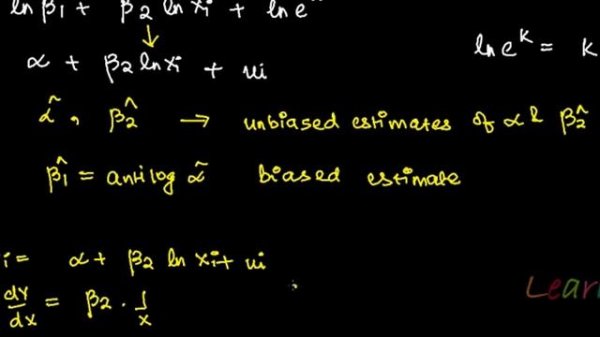 ln β1 + β2 ln xi + ln e
ln e^k = k
α + β2 ln xi + ui
α̂, β̂2 → unbiased estimates of α & β̂2
β̂1 = antilog α̂ biased estimate
i = α + β2 ln xi + ui
dy/dx = β2 · 1/x
Lear